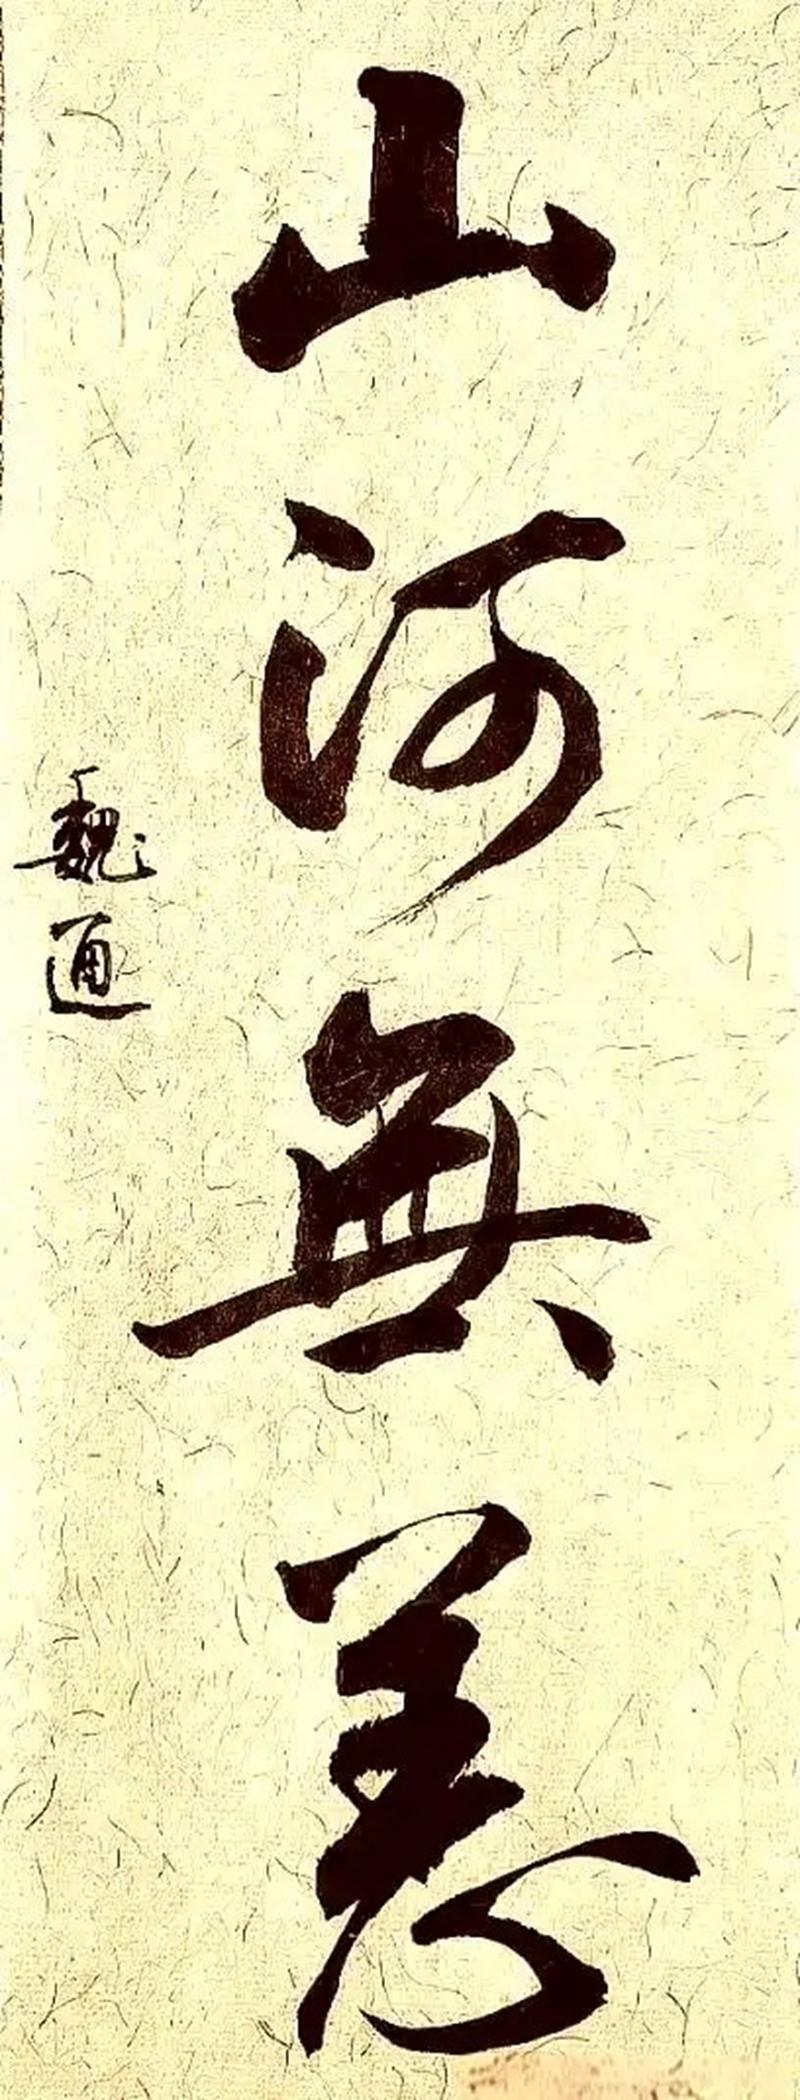 山河無恙
魏通